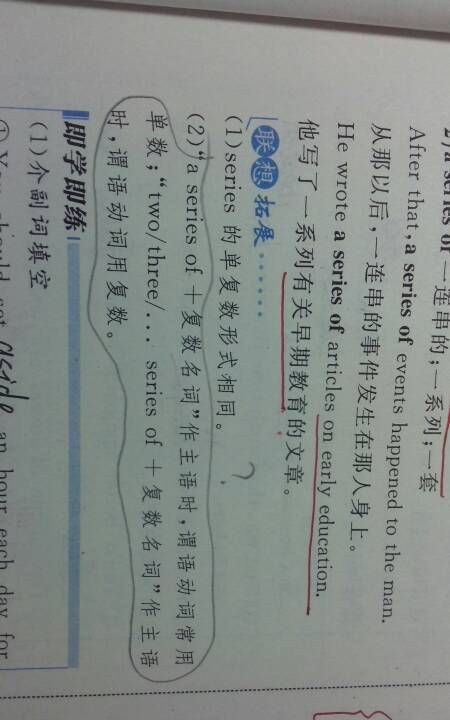 2) a series of 一连串的;一系列;一套
After that, a series of events happened to the man.
从那以后,一连串的事件发生在那人身上。
He wrote a series of articles on early education.
他写了一系列有关早期教育的文章。
联想拓展······
(1) series 的单复数形式相同。 ?
(2)“a series of +复数名词”作主语时,谓语动词常用
单数;“two/three/... series of +复数名词”作主语
时,谓语动词用复数。
即学即练
(1)介副词填空
① You should set aside an hour each day for